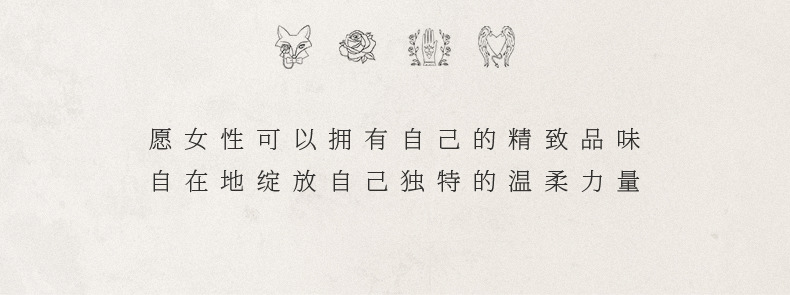 愿女性可以拥有自己的精致品味
自在地绽放自己独特的温柔力量